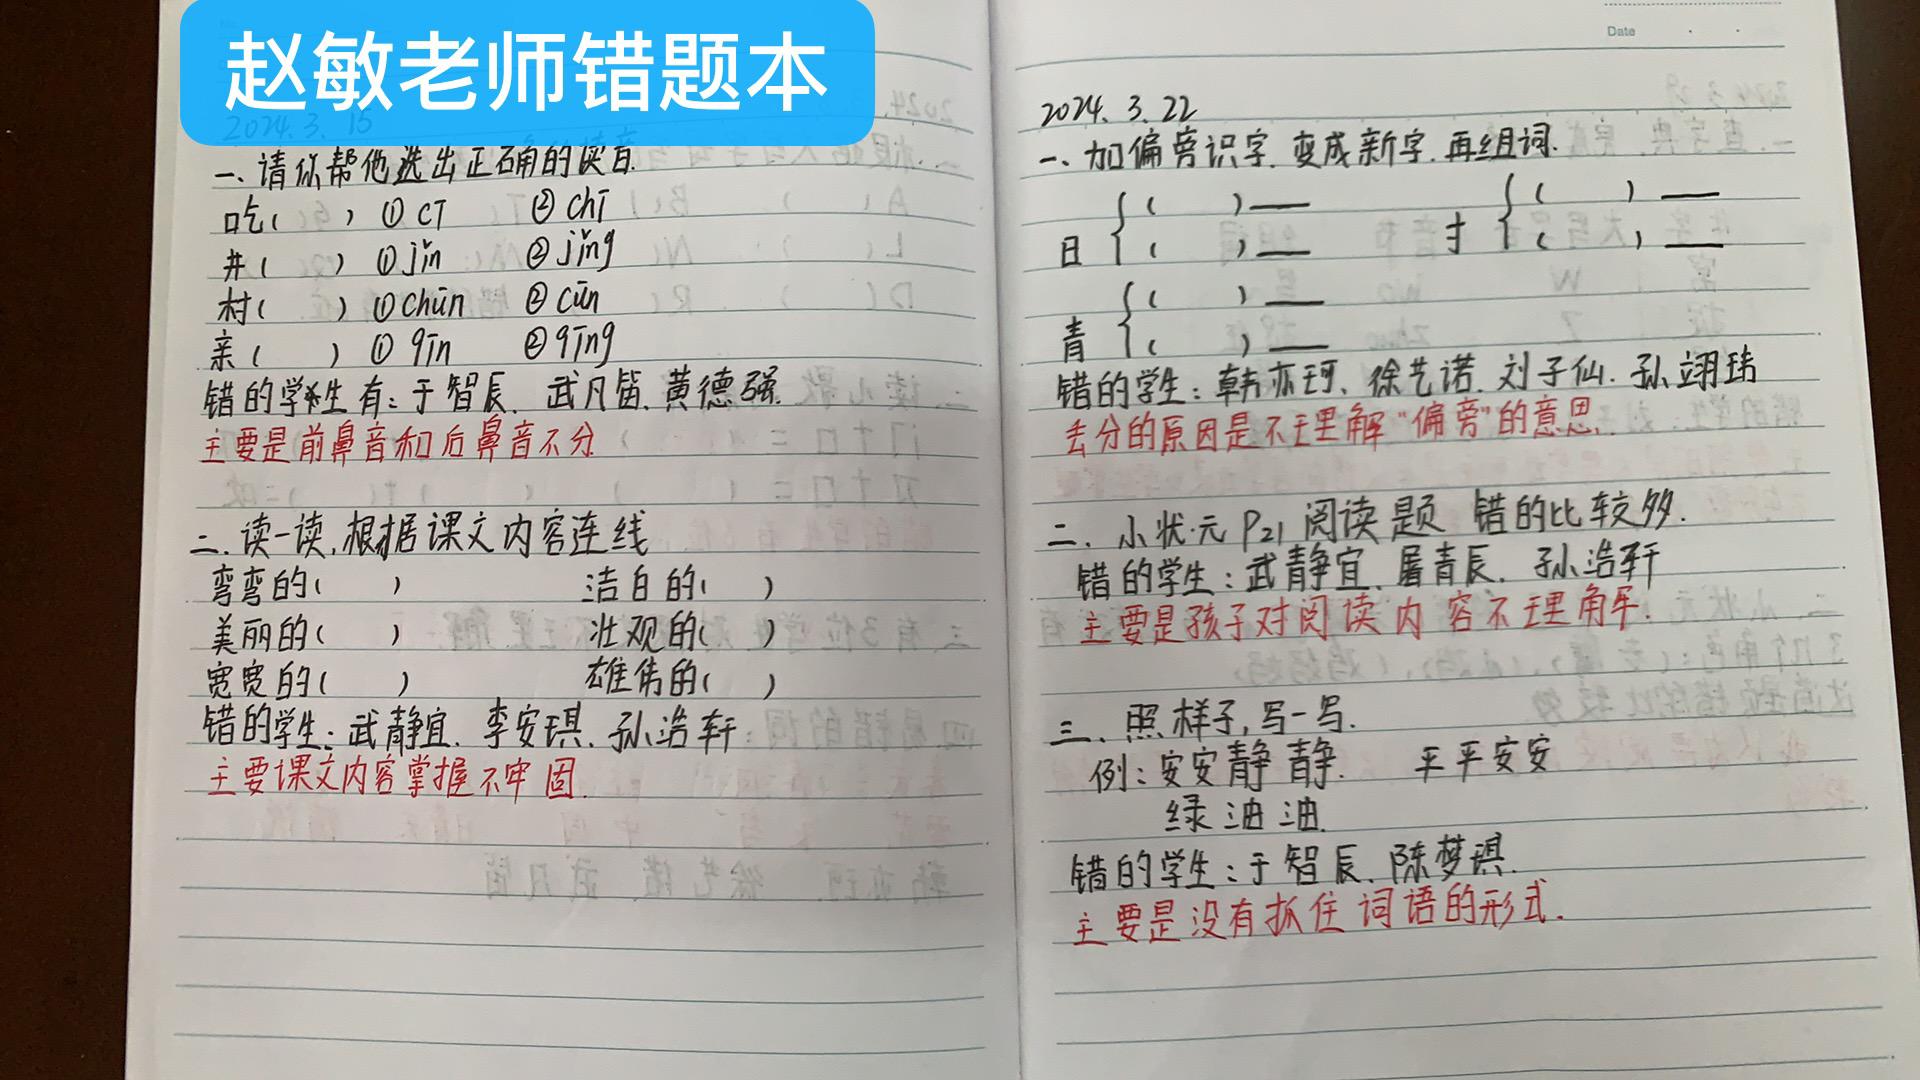 赵敏老师错题本
2024.3.15
一、请你帮他选出正确的读音.
吃( ) ①cī ②chī
井( ) ①jǐn ②jǐng
村( ) ①chūn ②cūn
亲( ) ①qīn ②qīng
错的学生有:于智辰、武凡笛、黄德强.
主要是前鼻音和后鼻音不分.
二、读一读,根据课文内容连线
弯弯的( ) 洁白的( )
美丽的( ) 壮观的( )
宽宽的( ) 雄伟的( )
错的学生:武静宜、李安琪、孙浩轩
主要课文内容掌握不牢固.
Date
2024.3.22
一、加偏旁识字.变成新字.再组词.
日 { ( )— 寸 { ( )—
( )— ( )—
青 { ( )—
( )—
错的学生:韩亦珂、徐艺诺、刘子仙、孙翊玮
丢分的原因是不理解“偏旁”的意思.
二、小状元P21阅读题 错的比较多.
错的学生:武静宜、屠青辰、孙浩轩
主要是孩子对阅读内容不理解.
三、照样子,写一写.
例:安安静静. 平平安安
绿油油.
错的学生:于智辰、陈梦琪.
主要是没有抓住词语的形式.